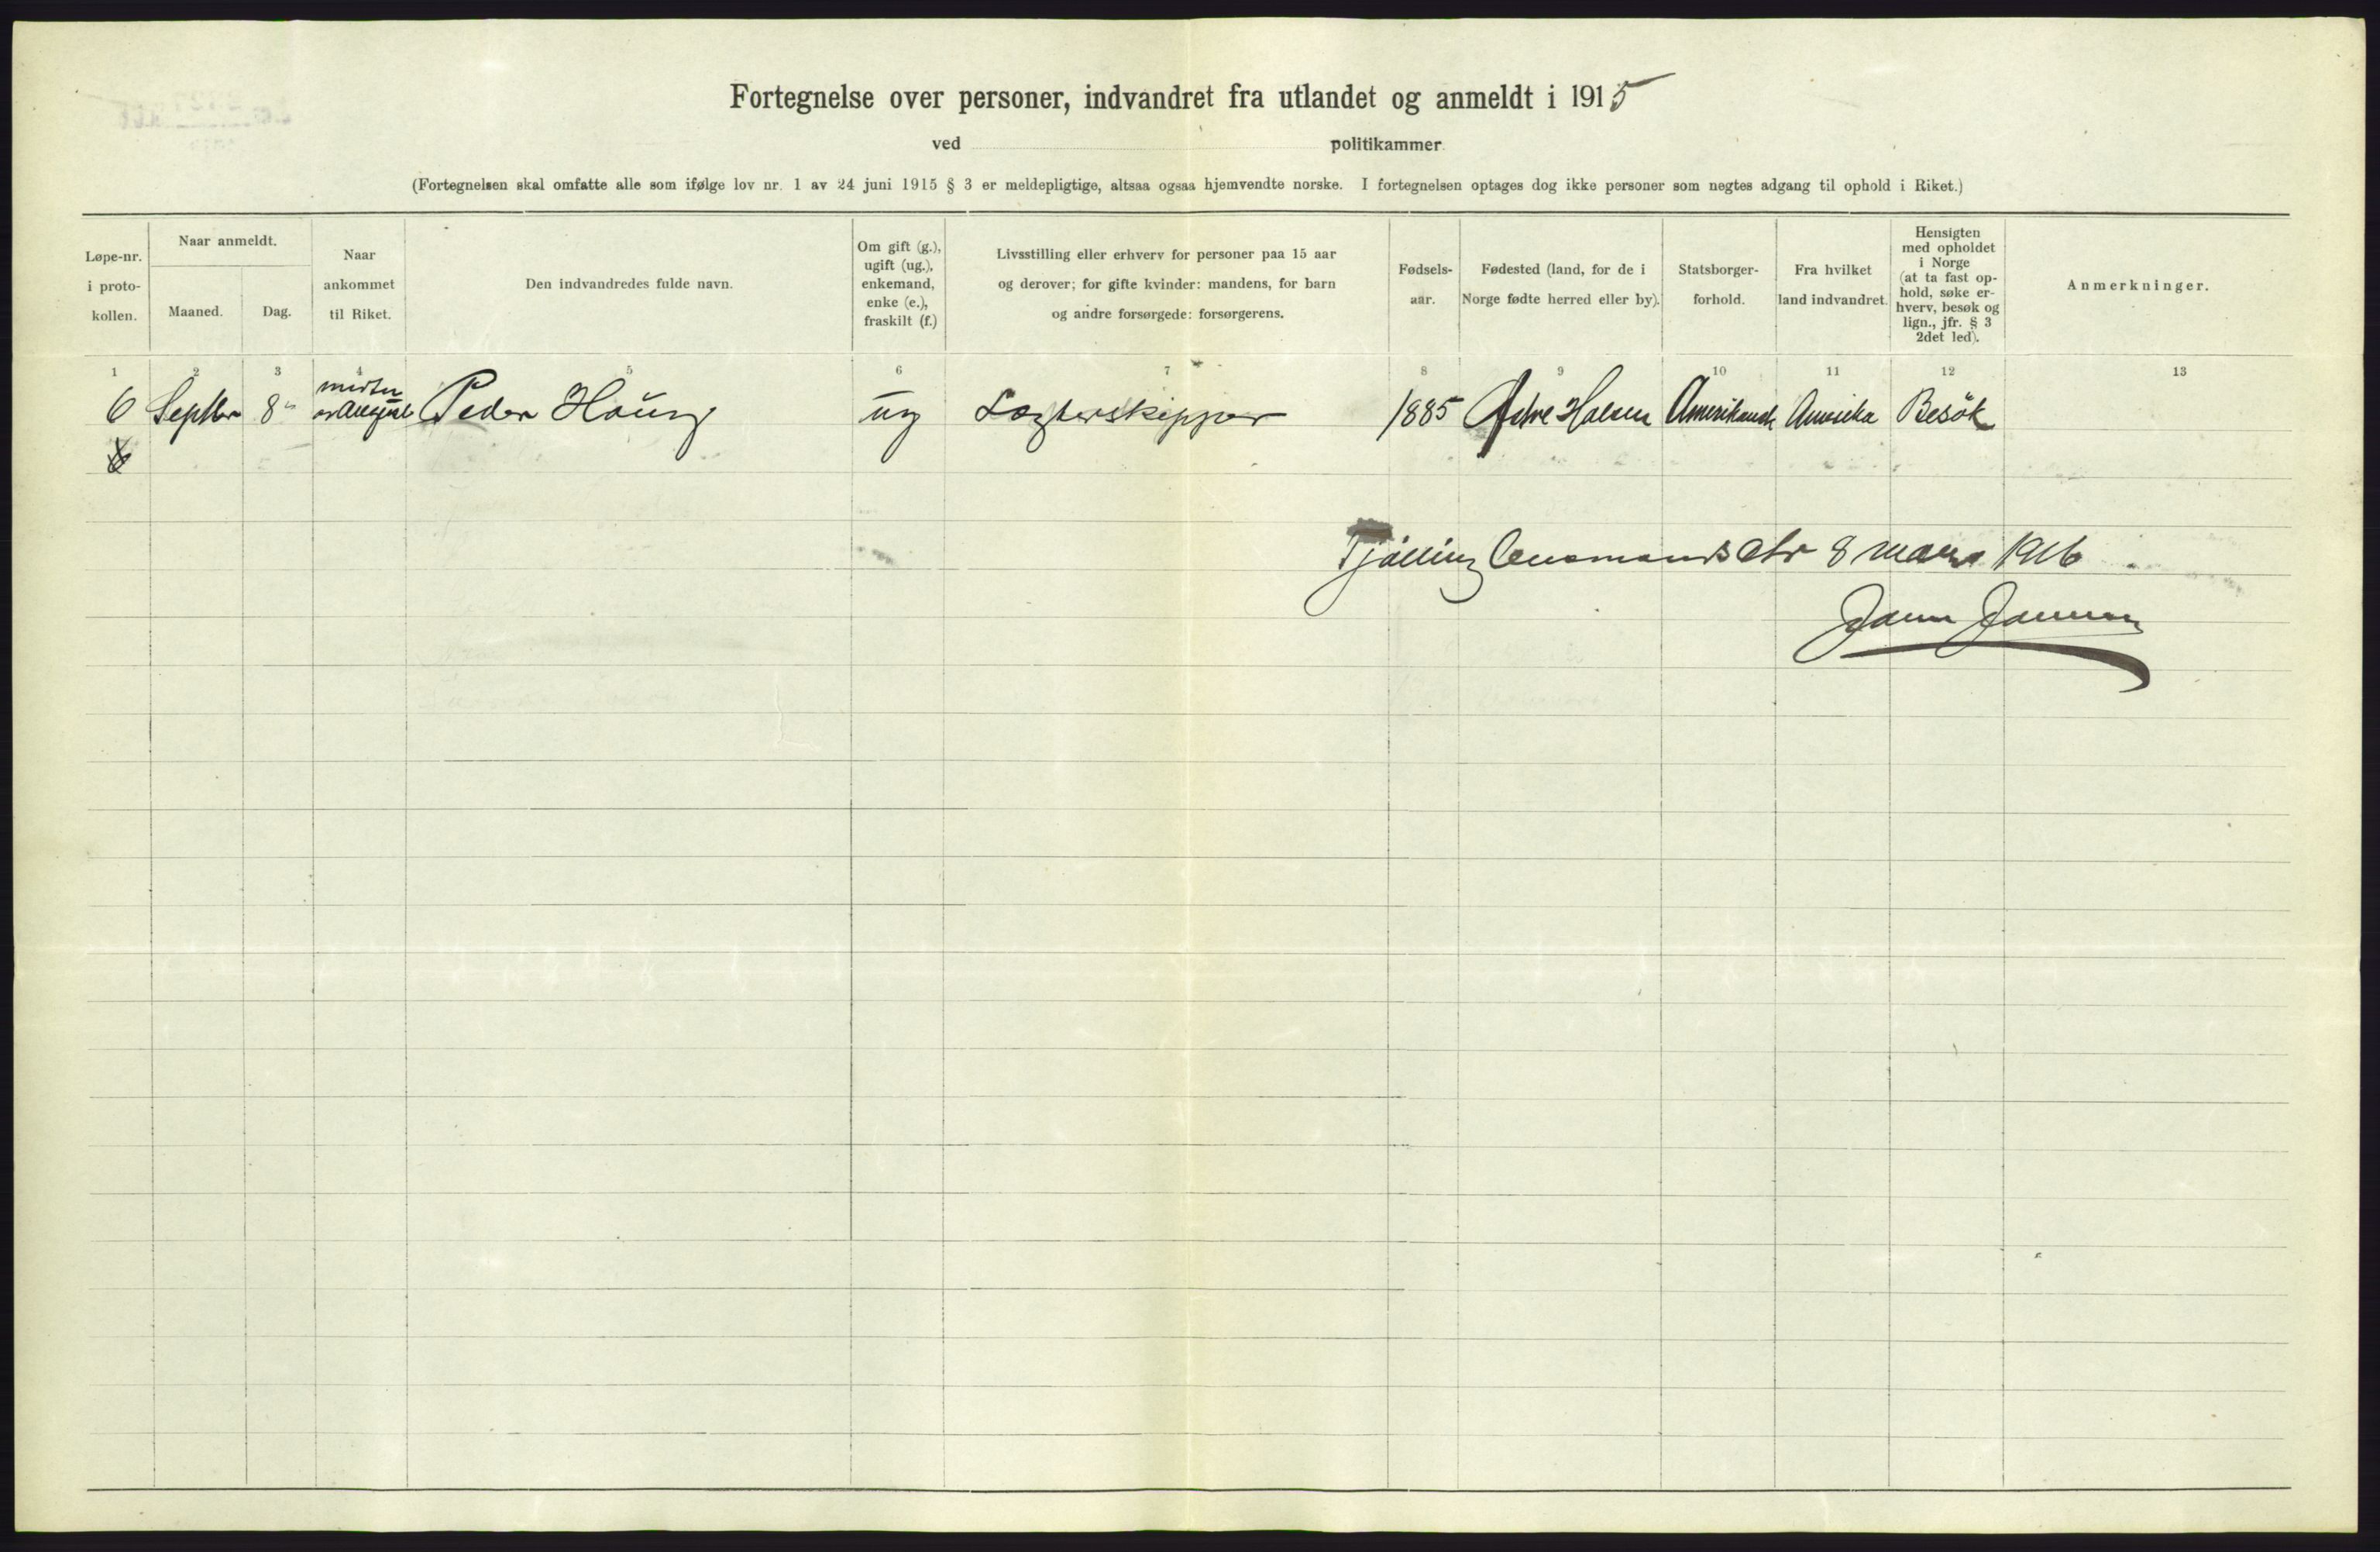 Fortegnelse over personer, indvandret fra utlandet og anmeldt i 1915
ved politikammer
(Fortegnelsen skal omfatte alle som ifølge lov nr. 1 av 24 juni 1915 § 3 er meldepligtige, altsaa ogsaa hjemvendte norske. I fortegnelsen optages dog ikke personer som negtes adgang til ophold i Riket.)
Løpe-nr.
i proto-
kollen.
Naar anmeldt.
Maaned.
Dag.
Naar
ankommet
til Riket.
Den indvandredes fulde navn.
Om gift (g.),
ugift (ug.),
enkemand,
enke (e.),
fraskilt (f.)
Livsstilling eller erhverv for personer paa 15 aar
og derover; for gifte kvinder: mandens, for barn
og andre forsørgede: forsørgerens.
Fødsels-
aar.
Fødested (land, for de i
Norge fødte herred eller by).
Statsborger-
forhold.
Fra hvilket
land indvandret.
Hensigten
med opholdet
i Norge
(at ta fast op-
hold, søke er-
hverv, besøk og
lign., jfr. § 3
2det led).
Anmerkninger.
1 2 3 4 5 6 7 8 9 10 11 12 13
6 Septbr 8 Peder Houg ug Lægterskipper 1885 Halsen Amerikansk Amerika Besök
Tjölling 8 mars 1916